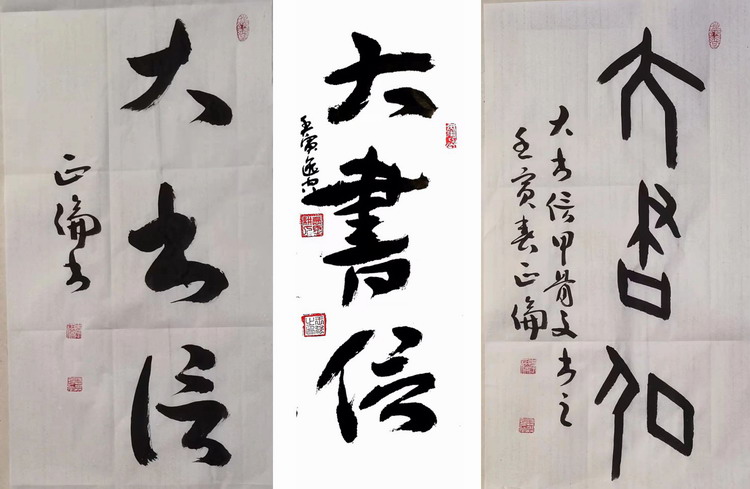 大书信
正倫书
大書信
壬寅逸
大書信
大书信甲骨文书之
壬寅春正倫